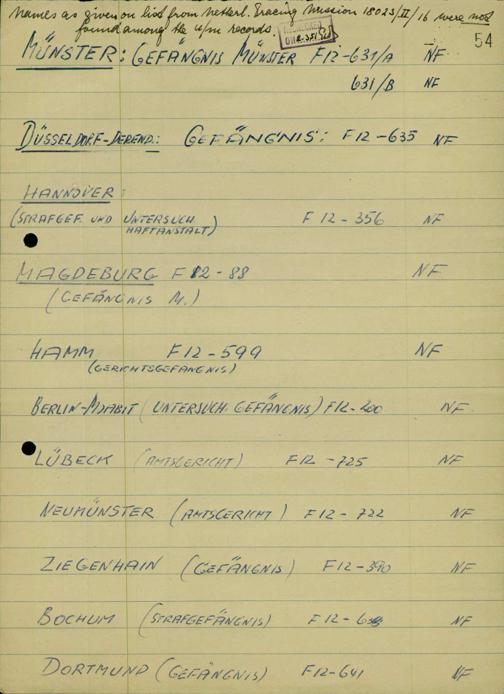 Names as given on list from Netherl. Tracing Mission 18023/II/16 were not
found among the u/m records.
54
MÜNSTER: GEFÄNGNIS MÜNSTER F12-631/A NF
631/B NF
DÜSSELDORF-DEREND.: GEFÄNGNIS: F12-635 NF
HANNOVER:
(STRAFGEF. UND UNTERSUCH. F12-356 NF
HAFTANSTALT)
MAGDEBURG F12-88 NF
(GEFÄNGNIS M.)
HAMM F12-599 NF
(GERICHTSGEFÄNGNIS)
BERLIN-MOABIT (UNTERSUCH. GEFÄNGNIS) F12-200 NF
LÜBECK (AMTSGERICHT) F12-725 NF
NEUMÜNSTER (AMTSGERICHT) F12-722 NF
ZIEGENHAIN (GEFÄNGNIS) F12-390 NF
BOCHUM (STRAFGEFÄNGNIS) NF
DORTMUND (GEFÄNGNIS) F12-641 NF